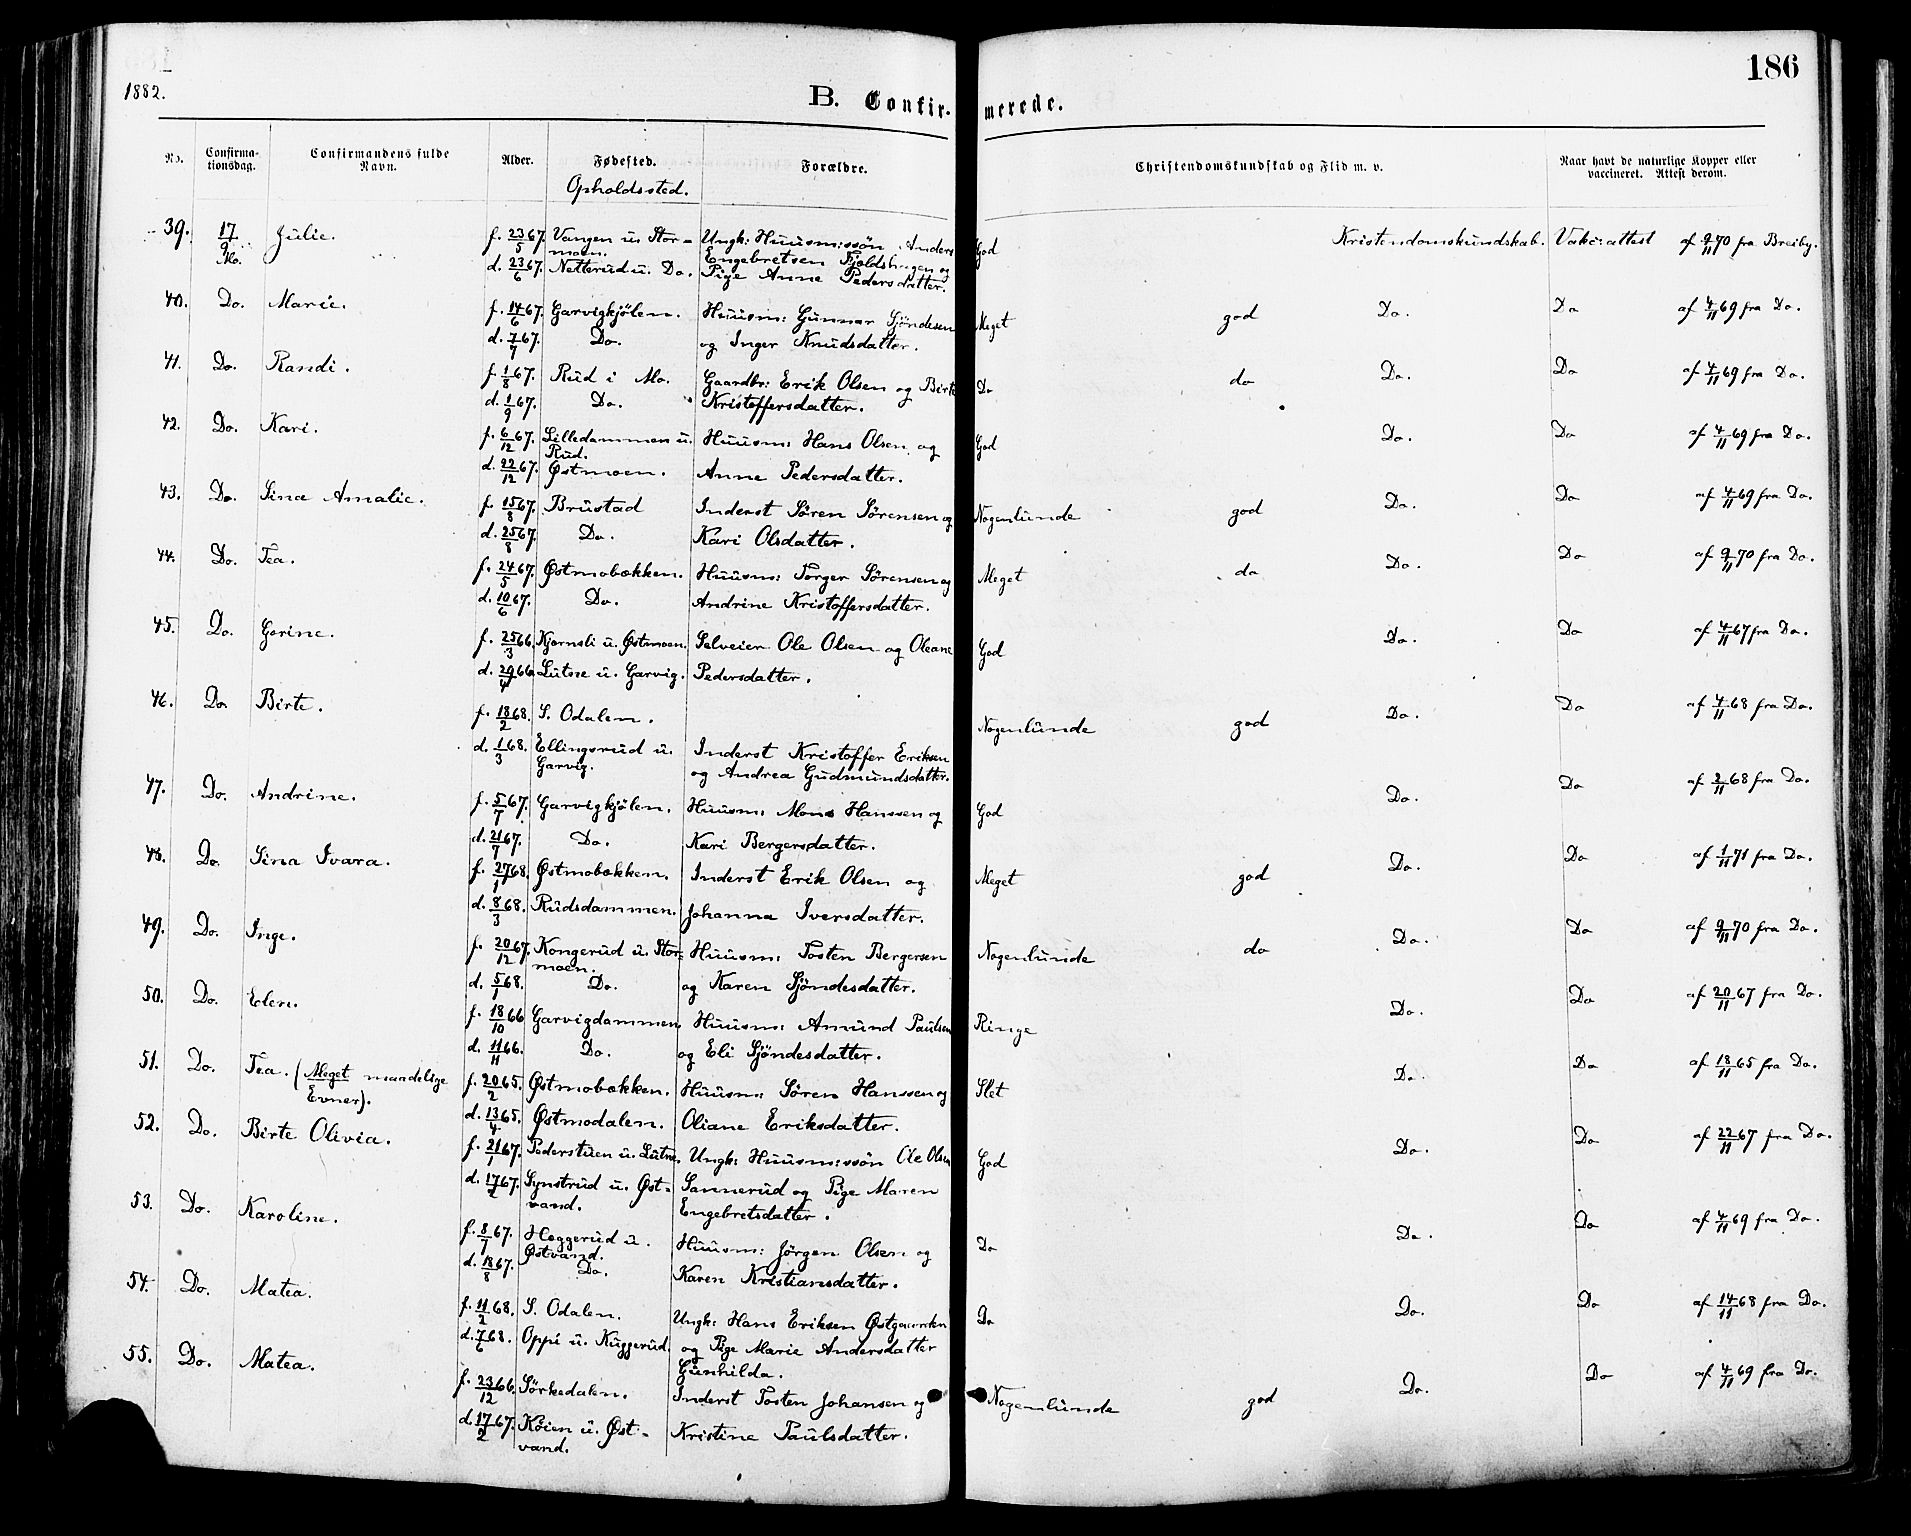 1882.
186
B. Confirmerede.
No. Confirmationsdag. Confirmandens fulde Navn. Alder. Fødested. Forældre. Christendomskundskab og Flid m. v. Naar havt de naturlige Kopper eller vaccineret. Attest derom.
Opholdssted.
39. 17/9 Mo. Julie. f. 23/5 67. Vangen u. Stor- Ungk: Huusm:søn Anders God Kristendomskundskab. Vakc:attest af 9/11 70 fra Breiby.
moen. Engebretsen Fjoldshagen og
d. 23/6 67. Netterud u. Do. Pige Anne Pedersdatter.
40. Do. Marie. f. 14/6 67. Garvigkjölen. Huusm: Gunnar Sjöndesen Meget god Do. Do af 4/11 69 fra Do.
d. 7/7 67. Do. og Inger Knudsdatter.
41. Do. Randi. f. 1/8 67. Rud i Mo. Gaardbr: Erik Olsen og Birte Do do Do. Do af 4/11 69 fra Do.
d. 1/9 67. Do. Kristoffersdatter.
42. Do. Kari. f. 6/12 67. Lilledammen u. Huusm: Hans Olsen og God Do. Do af 4/11 69 fra Do.
Rud.
d. 22/12 67. Østmoen. Anne Pedersdatter.
43. Do. Sina Amalie. f. 15/8 67. Brustad Inderst Søren Sørensen og Nogenlunde god Do. Do af 4/11 69 fra Do.
d. 25/8 67. Do. Kari Olsdatter.
44. Do. Tea. f. 24/5 67. Østmobækken. Huusm: Torger Sørensen og Meget do Do. Do af 9/11 70 fra Do.
d. 10/6 67. Do. Andrine Kristoffersdatter.
45. Do. Gorine. f. 25/3 66. Kjernsli u. Østmoen. Selveier Ole Olsen og Oleane God Do. Do af 4/11 67 fra Do.
d. 29/4 66. Lutne u. Garvig. Pedersdatter.
46. Do Birte. f. 18/2 68. S. Odalen. Nogenlunde god Do. Do af 4/11 68 fra Do.
d. 1/3 68. Ellingsrud u. Inderst Kristoffer Eriksen
Garvig. og Andrea Gudmundsdatter.
47. Do. Andrine. f. 5/7 67. Garvigkjölen. Huusm: Mons Hanssen og God Do. Do af 2/11 68 fra Do.
d. 21/7 67. Do. Kari Bergersdatter.
48. Do. Sina Ivara. f. 27/1 68. Østmobækken. Inderst Erik Olsen og Meget god Do. Do af 1/11 71 fra Do.
d. 8/3 68. Rudsdammen. Johanna Iversdatter.
49. Do. Inge. f. 20/12 67. Kongerud u. Stor- Huusm: Tosten Bergersen Nogenlunde do Do. Do af 9/11 70 fra Do.
moen.
d. 5/1 68. Do. og Karen Sjöndesdatter.
50. Do. Elen. f. 18/10 66 Garvigdammen Huusm: Amund Paulsen Ringe Do. Do af 20/11 67 fra Do.
d. 11/11 66. Do. og Eli Sjöndesdatter.
51. Do. Tea. (Meget maadelige f. 20/2 65. Østmobækken. Huusm: Søren Hanssen og Slet Do. Do af 18/11 65 fra Do.
Evner). d. 13/4 65. Østmodalen. Oliane Eriksdatter.
52. Do. Birte Olivia. f. 21/1 67. Pederstuen u. Lutne. Ungk: Huusm:søn Ole Olsen God Do. Do af 22/11 67 fra Do.
d. 17/2 67. Synstrud u. Øst- Sannerud og Pige Maren
vand. Engebretsdatter.
53. Do. Karoline. f. 8/7 67. Heggerud u. Huusm: Jörgen Olsen og Do Do. Do af 4/11 69 fra Do.
Østvand.
d. 18/8 67. Do. Karen Kristiansdatter.
54. Do. Matea. f. 11/2 68. S. Odalen. Ungk: Hans Eriksen Do Do. Do af 14/11 68 fra Do.
d. 7/6 68. Oppi u. Kuggerud. og Pige Marie Andersdatter
Gunhilda.
55. Do. Matea. f. 23/12 66. Sörkedalen. Inderst Tosten Johansen og Nogenlunde god Do. Do af 4/11 69 fra Do.
d. 17/2 67. Köien u. Øst- Kristine Paulsdatter.
vand.